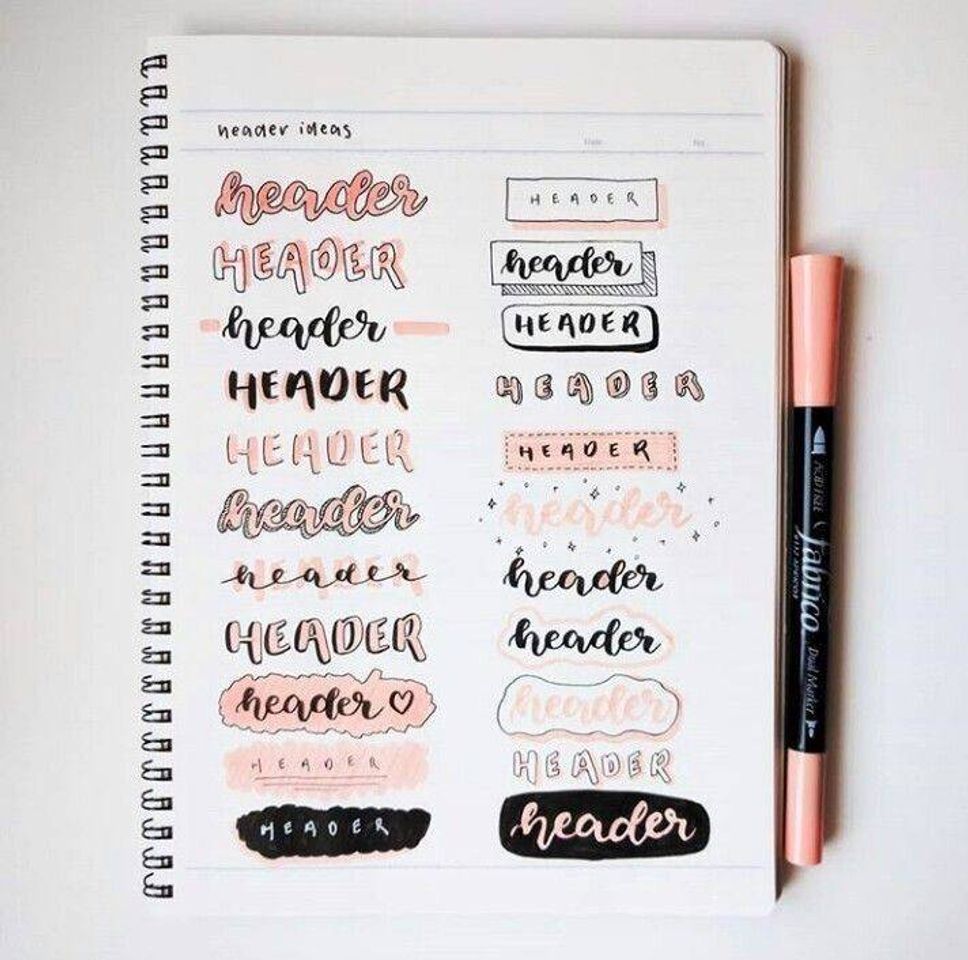 header ideas
Date
No.
header
HEADER
header
HEADER
HEADER
header
header
HEADER
header ♡
HEADER
HEADER
HEADER
header
HEADER
HEADER
HEADER
header
header
header
header
HEADER
header
ACID FREE
fabrico
Dual Marker